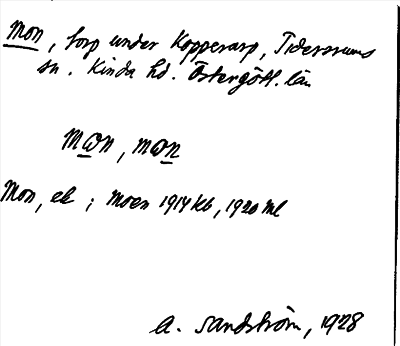 Mon, torp under Kopperarp, Tidersrums
sn. Kinda hd. Östergötl. län
Mon, ek ; Moen 1914 kb, 1920 ml
A. Sandström, 1928